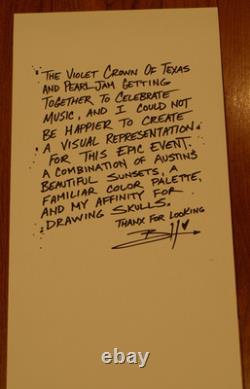 THE VIOLET CROWN OF TEXAS
AND PEARL JAM GETTING
TOGETHER TO CELEBRATE
MUSIC, AND I COULD NOT
BE HAPPIER TO CREATE
A VISUAL REPRESENTATION
FOR THIS EPIC EVENT.
A COMBINATION OF AUSTINS
BEAUTIFUL SUNSETS, A
FAMILIAR COLOR PALETTE,
AND MY AFFINITY FOR
DRAWING SKULLS.
THANX FOR LOOKING
worthpoint.com